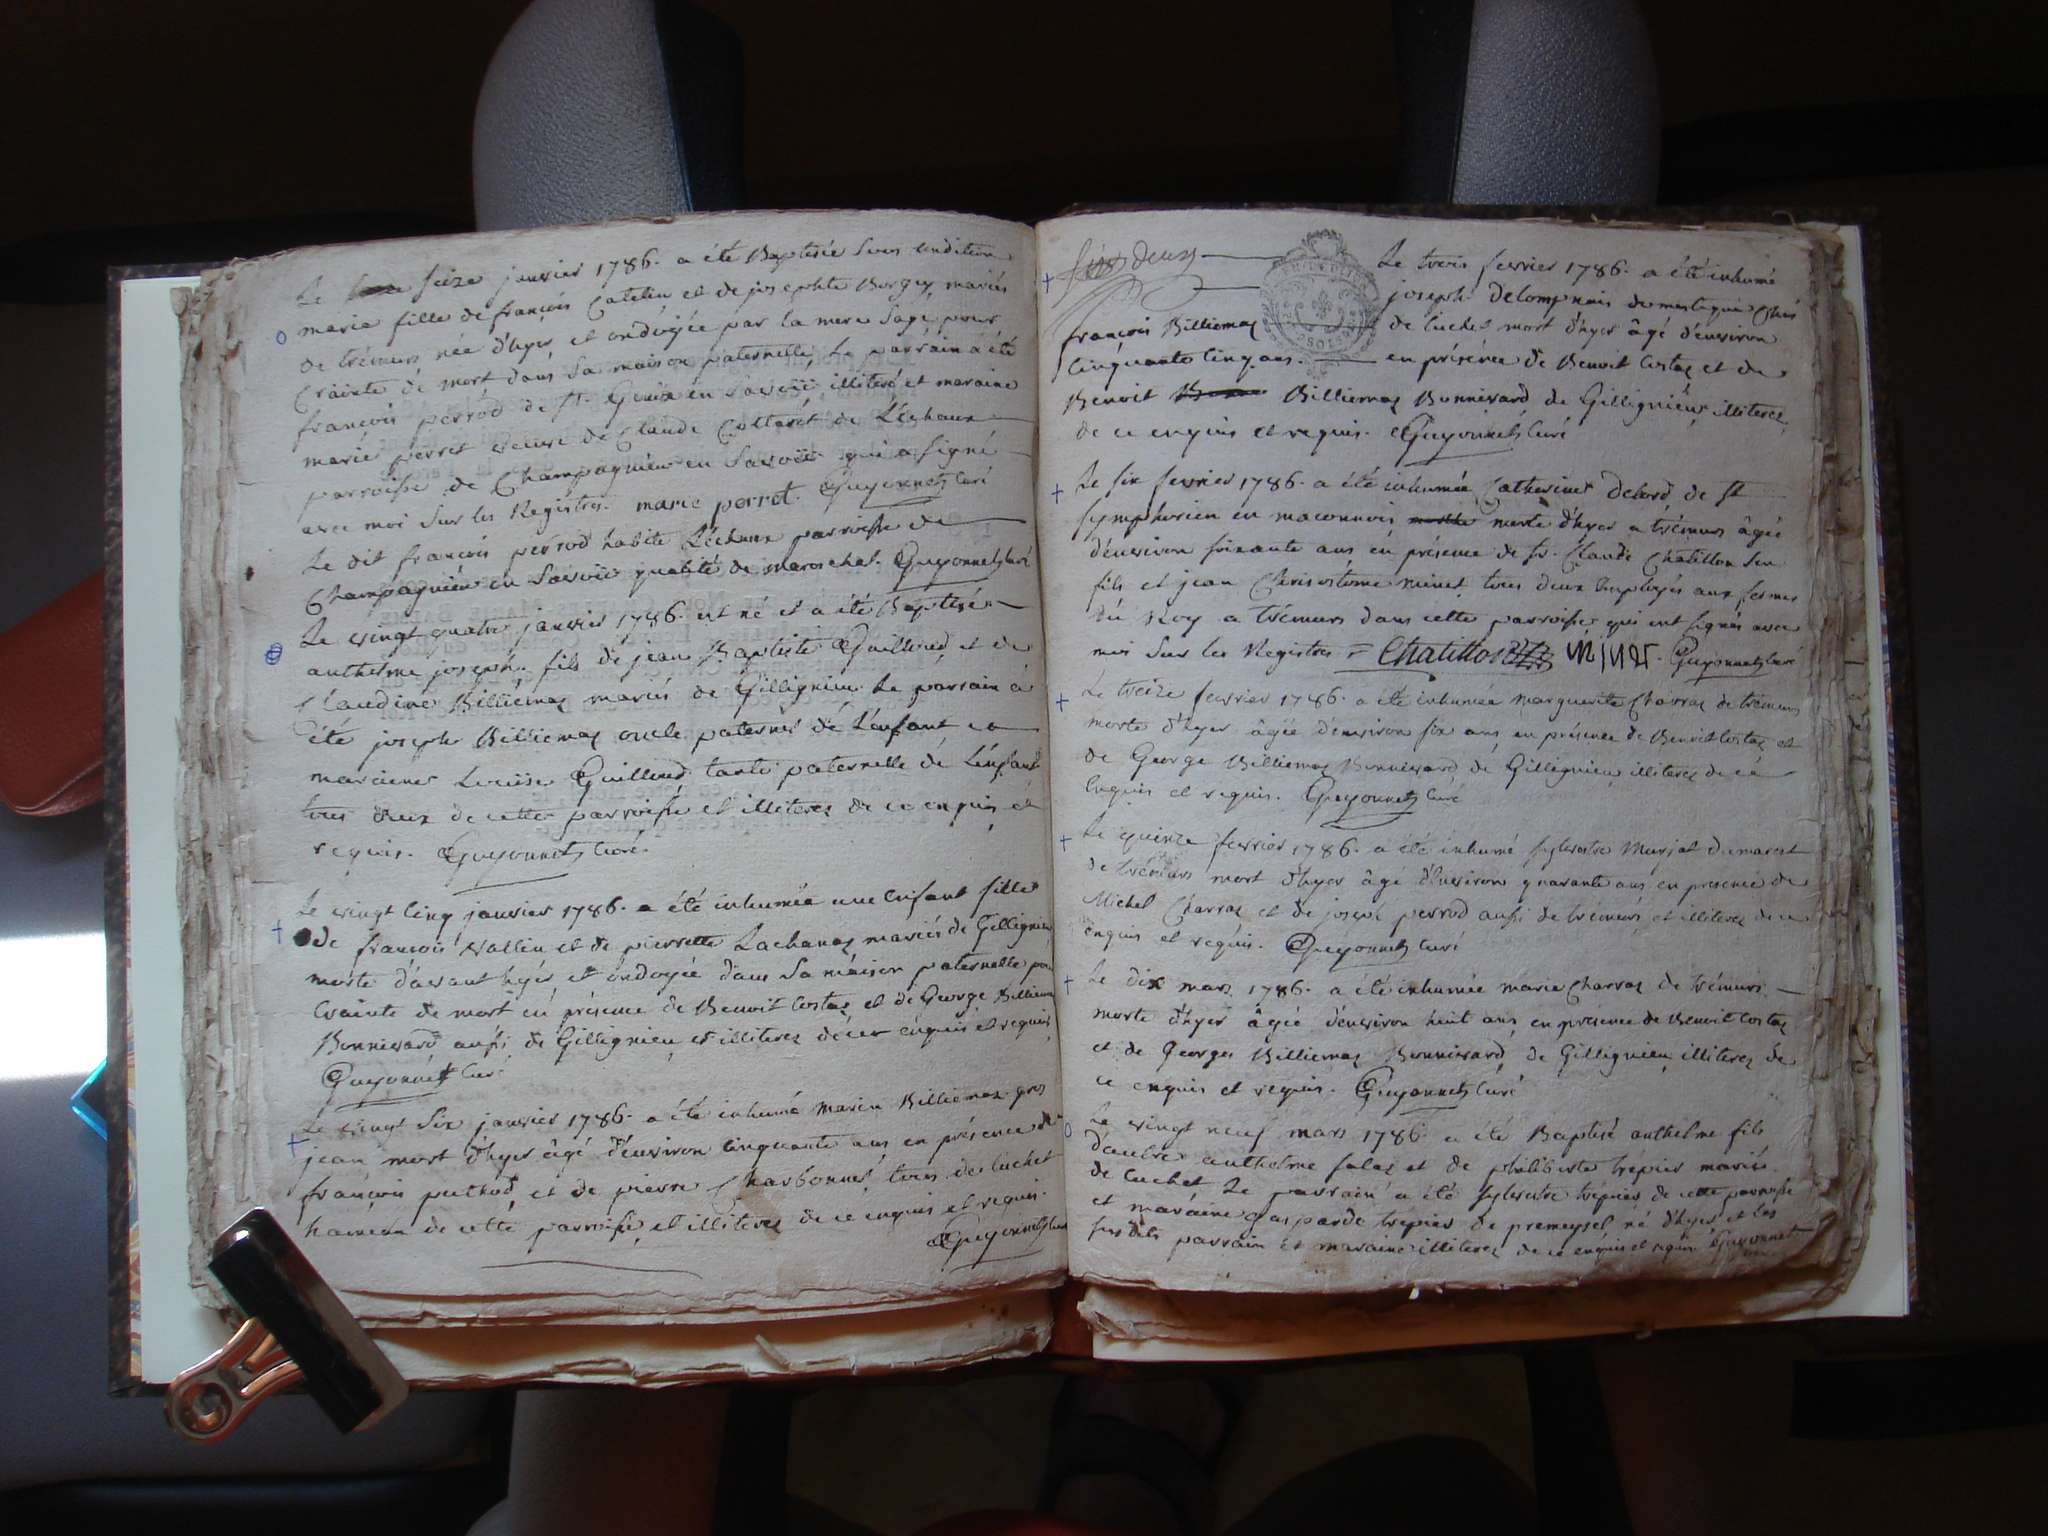 Le seize janvier 1786. a été Baptisée sous condition
marie fille de françois Catelin et de josephte Borgey mariés
de trémurs née d'hyer, et ondoyée par la mere sage pour
crainte de mort dans sa maison paternelle, Le parrain a été
françois perrod de st. Genix en Savoïe, illiteré et maraine
marie perret veuve de Claude Collaret de Léchaux
parroisse de Champagnieu en Savoïe qui a signé
avec moi sur les Registres. marie perret. Guyonnet Curé
Le dit françois perrod habite Léchaux parroisse de
Champagnieu en Savoïe qualité de mareschal. Guyonnet Curé
Le vingt quatre janvier 1786. est né et a été Baptisé
anthelme joseph fils de jean Baptiste Guilloud et de
Claudine Billiemaz mariés de Gillignieu Le parrain a
été joseph Billiemaz oncle paternel de L'enfant et
maraine Louïse Guilloud tante paternelle de L'enfant
tous deux de cette parroisse et illiterez de ce enquis et
requis. Guyonnet Curé.
Le vingt cinq janvier 1786. a été inhumée une Enfant fille
de françois Vallin et de pierrette Lachanaz mariés de Gillignieu
morte d'avant hyer, et ondoyée dans sa maison paternelle pour
crainte de mort en présence de Benoit Costaz et de George Billiemaz
Bonnivard aussi de Gillignieu et illiterez de ce enquis et requis
Guyonnet Curé
Le vingt six janvier 1786. a été inhumé marin Billiemaz gros
jean mort d'hyer âgé d'environ cinquante ans en présence de
françois puthod et de pierre Charbonnet tous de luchet
hameau de cette parroisse, et illiterez de ce enquis et requis.
Guyonnet Curé
Le trois fevrier 1786. a été inhumé
joseph delompnais de chés
françois Billiemaz de luchet mort d'hyer âgé d'environ
cinquante cinq ans. en présence de Benoit Costaz et de
Benoit Billiemaz Bonnivard de Gillignieu illiterez
de ce enquis et requis. Guyonnet Curé
Le six fevrier 1786. a été inhumée Catherine debord de st
symphorien en maconnois morte d'hyer a trémurs âgée
d'environ soixante ans en présence de sr. Claude Chatillon son
fils et jean Chrisostome minet tous deux Employés aux fermes
du Roy a trémurs dans cette parroisse qui ont signés avec
moi sur les Registres = Chatillon minet. Guyonnet Curé
Le treize fevrier 1786. a été inhumée marguerite Charraz de trémurs
morte d'hyer âgée d'environ six ans, en présence de Benoit Costaz et
de George Billiemaz Bonnivard de Gillignieu illiterez de ce
enquis et requis. Guyonnet Curé
Le quinze fevrier 1786. a été inhumé sylvestre Marjal
de trémurs mort d'hyer âgé d'environ quarante ans en presence de
Michel Charraz et de joseph perrod aussi de trémurs et illiterez de ce
enquis et requis. Guyonnet Curé
Le dix mars 1786. a été inhumée marie Charraz de trémurs
morte d'hyer âgée d'environ huit ans, en présence de Benoit Costaz
et de Georges Billiemaz Bonnivard, de Gillignieu illiterez de
ce enquis et requis. Guyonnet Curé
Le vingt neuf mars 1786. a été Baptisé anthelme fils
d'autre anthelme falaz et de philiberte trépier mariés
de luchet Le parrain a été sylvestre trépier de cette parroisse
et maraine gasparde trépier de premeysel né d'hyer et les
susdits parrain et maraine illiterez de ce enquis et requis Guyonnet